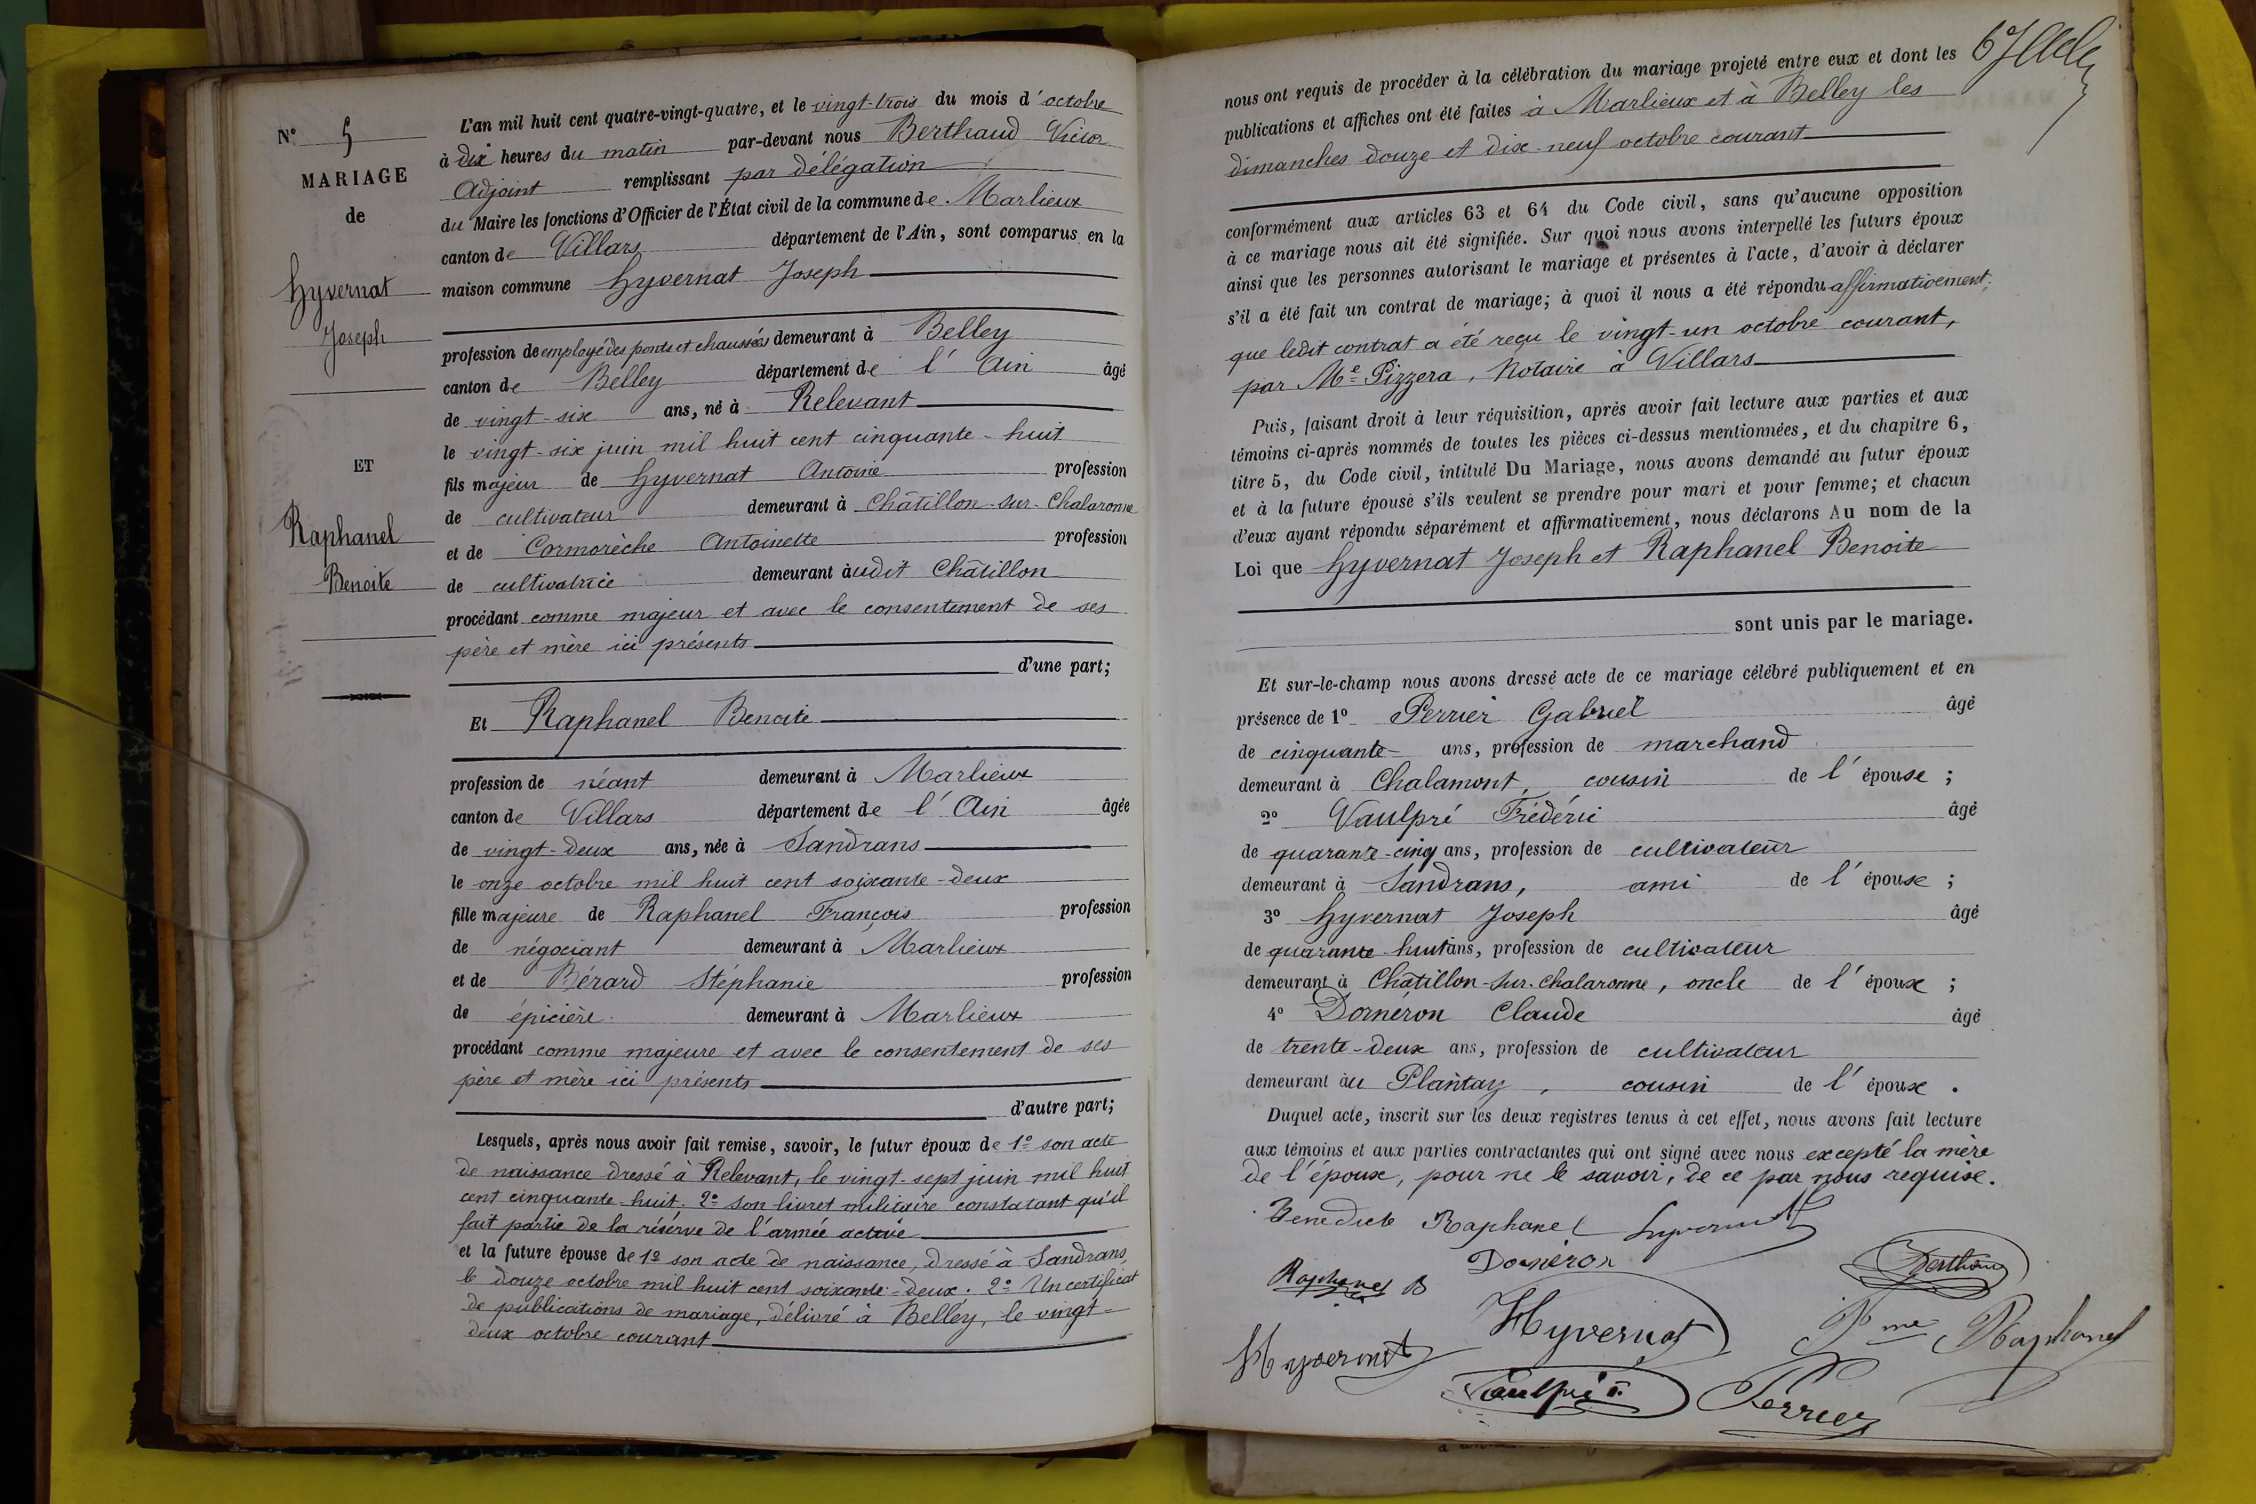 N° 5
MARIAGE
de
Hyvernat
Joseph
ET
Raphanel
Benoite
L'an mil huit cent quatre-vingt-quatre, et le vingt-trois du mois d'octobre
à dix heures du matin par-devant nous Berthaud Victor
Adjoint remplissant par délégation
du Maire les fonctions d'Officier de l'État civil de la commune de Marlieux
canton de Villars département de l'Ain, sont comparus en la
maison commune Hyvernat Joseph
profession de employé des ponts et chaussées demeurant à Belley
canton de Belley département de l'Ain âgé
de vingt-six ans, né à Relevant
le vingt-six juin mil huit cent cinquante-huit
fils majeur de Hyvernat Antoine profession
de cultivateur demeurant à Châtillon-sur-Chalaronne
et de Cormorèche Antoinette profession
de cultivatrice demeurant audit Châtillon
procédant comme majeur et avec le consentement de ses
père et mère ici présents
d'une part;
Et Raphanel Benoite
profession de néant demeurant à Marlieux
canton de Villars département de l'Ain âgée
de vingt-deux ans, née à Sandrans
le onze octobre mil huit cent soixante-deux
fille majeure de Raphanel François profession
de négociant demeurant à Marlieux
et de Bérard Stéphanie profession
de épicière demeurant à Marlieux
procédant comme majeure et avec le consentement de ses
père et mère ici présents
d'autre part;
Lesquels, après nous avoir fait remise, savoir, le futur époux de 1° son acte
de naissance dressé à Relevant, le vingt-sept juin mil huit
cent cinquante-huit. 2° son livret militaire constatant qu'il
fait partie de la réserve de l'armée active
et la future épouse de 1° son acte de naissance, dressé à Sandrans,
le douze octobre mil huit cent soixante-deux. 2° Un certificat
de publications de mariage, délivré à Belley, le vingt-
deux octobre courant
nous ont requis de procéder à la célébration du mariage projeté entre eux et dont les
publications et affiches ont été faites à Marlieux et à Belley les
dimanches douze et dix-neuf octobre courant
conformément aux articles 63 et 64 du Code civil, sans qu'aucune opposition
à ce mariage nous ait été signifiée. Sur quoi nous avons interpellé les futurs époux
ainsi que les personnes autorisant le mariage et présentes à l'acte, d'avoir à déclarer
s'il a été fait un contrat de mariage; à quoi il nous a été répondu affirmativement;
que ledit contrat a été reçu le vingt-un octobre courant,
par Me Pizzera, Notaire à Villars
Puis, faisant droit à leur réquisition, après avoir fait lecture aux parties et aux
témoins ci-après nommés de toutes les pièces ci-dessus mentionnées, et du chapitre 6,
titre 5, du Code civil, intitulé Du Mariage, nous avons demandé au futur époux
et à la future épouse s'ils veulent se prendre pour mari et pour femme; et chacun
d'eux ayant répondu séparément et affirmativement, nous déclarons Au nom de la
Loi que Hyvernat Joseph et Raphanel Benoite
sont unis par le mariage.
Et sur-le-champ nous avons dressé acte de ce mariage célébré publiquement et en
présence de 1° Perrier Gabriel âgé
de cinquante ans, profession de marchand
demeurant à Chalamont, cousin de l'épouse ;
2° Vaulpré Frédéric âgé
de quarante-cinq ans, profession de cultivateur
demeurant à Sandrans, ami de l'épouse ;
3° Hyvernat Joseph âgé
de quarante huit ans, profession de cultivateur
demeurant à Châtillon-sur-Chalaronne, oncle de l'époux ;
4° Dornéron Claude âgé
de trente-deux ans, profession de cultivateur
demeurant au Plantay, cousin de l'époux .
Duquel acte, inscrit sur les deux registres tenus à cet effet, nous avons fait lecture
aux témoins et aux parties contractantes qui ont signé avec nous excepté la mère
de l'époux, pour ne le savoir, de ce par nous requise.
Benedicte Raphanel Hyvernat
Raphanel B Dornéron Berthaud
Hyvernat Hyvernat Fme Raphanel
Vaulpré f. Perrier